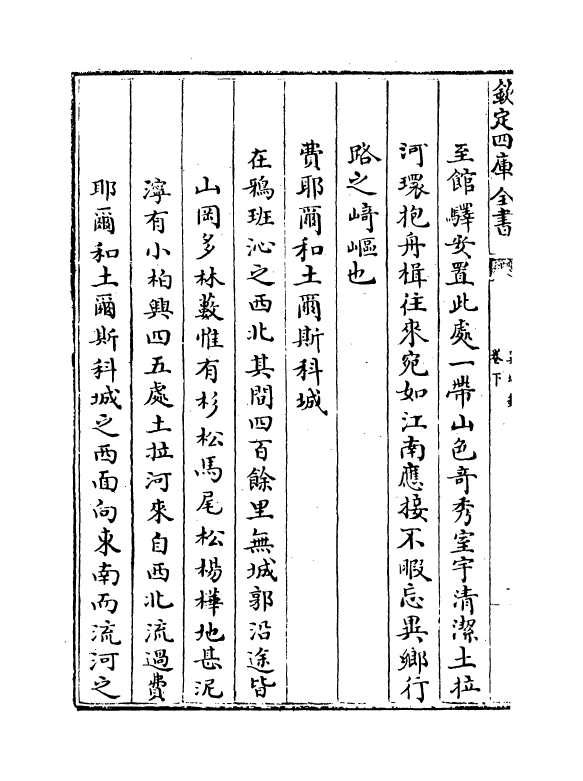 欽定四庫全書
卷下
至館驛安置此處一帶山色竒秀室宇清潔土拉
河環抱舟楫往來宛如江南應接不暇忘異鄉行
路之﨑嶇也
費耶爾和土爾斯科城
在鴉班沁之西北其間四百餘里無城郭沿途皆
山岡多林藪惟有杉松馬尾松楊樺地甚泥
濘有小柏興四五處土拉河來自西北流過費
耶爾和土爾斯科城之西面向東南而流河之